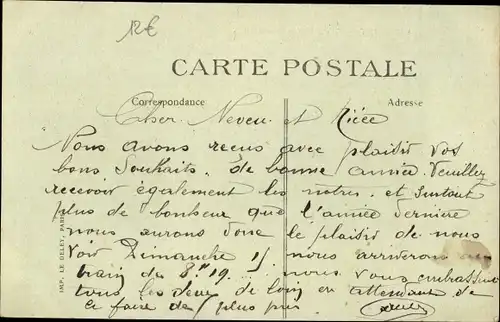 12€
CARTE POSTALE
Correspondance
Adresse
Cher Neveu et Niéce
Nous avons recus avec plaisir vos
bons Souhaits de bonne année Veuillez
recevoir également les notres et surtout
plus de bonheur que l'année derniere
nous aurons donc le plaisir de nous
Voir Dimanche 15 nous arriverons au
train de 8h 19 nous vous embrassons
tous les deux de loin en attendant de
le faire de plus pres
IMP. LE DELEY, PARIS